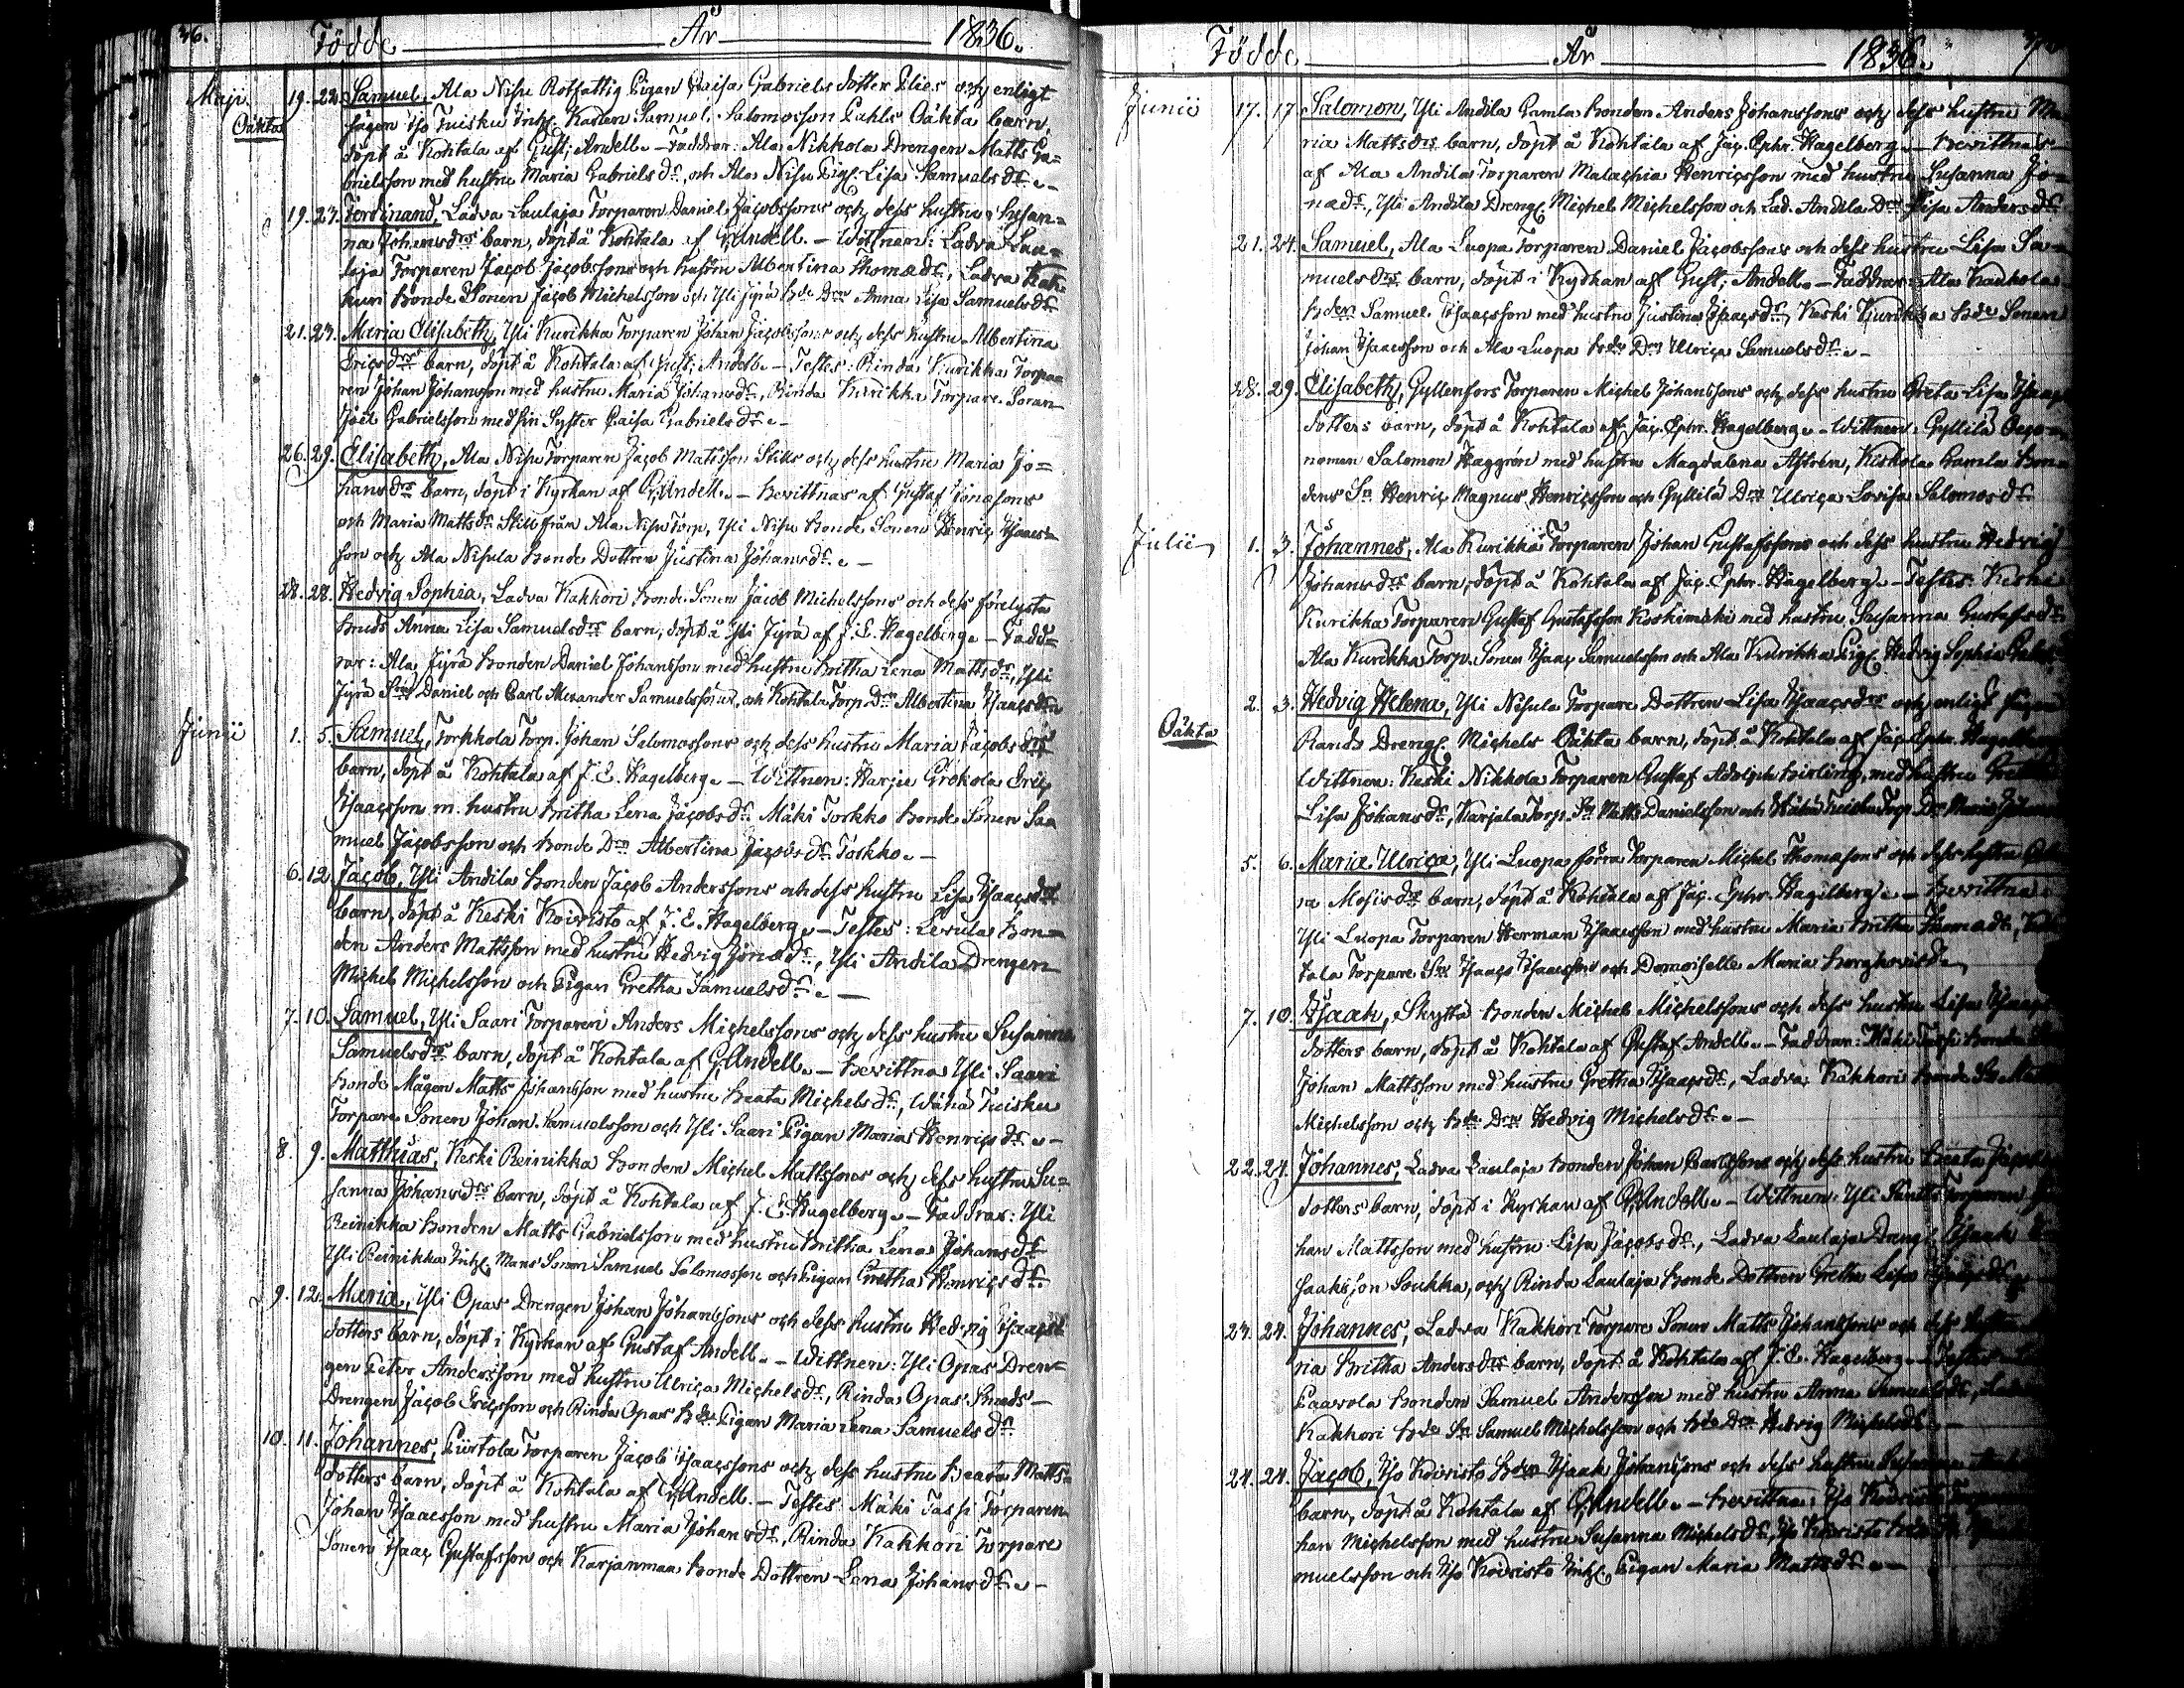 36.
Födde År 1836.
Maji 19. 22. Samuel, Ala Nisu Rotfattig Pigan Caisa Gabriels dotter Plies och enligt
Oäkta sägen Iso Tuisku Inhs. Karlen Samuel Salomosson Pahls Oäkta barn,
döpt å Kohtala af Gust; Andell. – Faddrar: Ala Nikkola Drengen Matts Ga=
brielsson med hustru Maria Gabriels dr, och Ala Nisu Pigs. Lisa Samuels dr. –
19. 27. Ferdinand, Ladva Laulaja Torparen Daniel Jacobssons och dess hustru Susan=
na Johans drs barn, döpt å Kohtala af G; Andell. – Wittnen: Ladva Lau=
laja Torparen Jacob Jacobssons och hustru Albertina Thomæ dr, Ladva Kak=
kuri Bonde Sonen Jacob Michelsson och Yli Jyrä Bde Drn Anna Lisa Samuels dr
21. 23. Maria Elisabeth, Yli Kurikka Torparen Johan Jacobssons och dess hustru Albertina
Erics drs barn, döpt å Kohtala af Gust; Andell. – Testes: Rinda Kurikka Torpa=
ren Johan Johansson med hustru Maria Johans dr, Rinda Kurikka Torpare Sonen
Joël Gabrielsson med sin Syster Caisa Gabriels dr. –
26. 29. Elisabeth, Ala Nisu Torparen Jacob Mattsson Stills och dess hustru Maria Jo=
hans drs barn, döpt i Kyrkan af G; Andell. – Bevittnas af Gustaf Jonasons
och Maria Matts dr Still från Ala Nisu Torp, Yli Nisu Bonde Sonen Henric Isaacs=
son och Ala Nisula Bonde Dottren Justina Johans dr. –
28. 28. Hedvig Sophia, Ladva Kakkori Bonde Sonen Jacob Michelssons och dess förelysta
Bruds Anna Lisa Samuels drs barn, döpt å Yli Jyrä af J. E. Hagelberg. – Fadd=
rar: Ala Jyrä Bonden Daniel Johansson med hustru Britha Lena Matts dr, Yli
Jyrä Snr Daniel och Carl Alexander Samuelssöner, och Kohtala Torp. Drn Albertina Isaacs dr
Junii 1. 5. Samuel, Torkkola Torp. Johan Salomossons och dess hustru Maria Jacobs drs
barn, döpt å Kohtala af J. E. Hagelberg. – Wittnen: Harju Grokola Eric
Isaacsson m. hustru Britha Lena Jacobs dr Mäki Torkko Bonde Sonen Sa=
muel Jacobsson och Bonde Drn Albertina Jacobs dr Torkko. –
6. 12. Jacob, Yli Andila Bonden Jacob Anderssons och dess hustru Lisa Isaacs drs
barn, döpt å Keski Koivisto af J. E. Hagelberg. – Testes: Levula Bon=
den Anders Mattsson med hustru Hedvig Jonæ dr, Yli Andila Drengen
Michel Michelsson och Pigan Gretha Samuels dr. –
7. 10. Samuel, Yli Saari Torparen Anders Michelssons och dess hustru Susanna
Samuels drs barn, döpt å Kohtala af G; Andell. – Bevittna Yli Saari
Bonde Mågen Matts Johansson med hustru Beata Michels dr, Wähä Tuisku
Torpare Sonen Johan Samuelsson och Yli Saari Pigan Maria Henrics dr. –
8. 9. Matthias, Keski Reinikka Bonden Michel Mattssons och dess hustru Su=
sanna Johans drs barn, döpt å Kohtala af J. E. Hagelberg. – Faddrar: Yli
Reinikka Bonden Matts Gabrielsson med hustru Britha Lena Johans dr
Yli Reinikka Inhs. Mans Sonen Samuel Salomosson och Pigan Gretha Henrics dr
9. 12. Maria, Yli Opas Drengen Johan Johanssons och dess hustru Hedvig Isaacs
dotters barn, döpt i Kyrkan af Gustaf Andell. – Wittnen: Yli Opas Dren=
gen Peter Andersson med hustru Ulrica Michels dr, Rinda Opas Smeds –
Drengen Jacob Ericsson och Rinda Opas Bde Pigan Maria Lena Samuels dr
10. 11. Johannes, Piirtola Torparen Jacob Isaacssons och dess hustru Beata Matts=
dotters barn, döpt å Kohtala af G; Andell. – Testes: Mäki Tassi Torparen
Johan Isaacsson med hustru Maria Johans dr, Rinda Kakkori Torpare
Sonen Isaac Gustafsson och Karjanmaa Bonde Dottren Lena Johans dr. –
Födde År 1836.
Junii 17. 17 Salomon, Yli Andila Gamla Bonden Anders Johanssons och dess hustru Ma=
ria Matts drs barn, döpt å Kohtala af Jac. Ephr. Hagelberg. – Bevittnas
af Ala Andila Torparen Malachia Henricsson med hustru Susanna Jo=
næ dr, Yli Andila Drengs. Michel Michelsson och Lad. Andila Drn Lisa Anders dr
21. 24. Samuel, Ala Luopa Torparen Daniel Jacobssons och dess hustru Lisa Sa=
muels drs barn, döpt i Kyrkan af Gust; Andell. – Faddrar: Ala Kaukola
Bden Samuel Isaacsson med hustru Justina Isaacs dr, Keski Kurikka Bde Sonen
Johan Isaacsson och Ala Luopa Bde Drn Ulrica Samuels dr. –
28. 29. Elisabeth, Gyllenfors Torparen Michel Johanssons och dess hustru Greta Lisa Isaacs
dotters barn, döpt å Kohtala af Jac. Ephr. Hagelberg. – Wittnen: Gyllilä
nomen Salomon Haggrén med hustru Magdalena Astrén, Kiskola Gamla Bon=
dens Sn Henric Magnus Henricsson och Gyllilä Drn Ulrica Lovisa Salomos dr
Julii 1. 3. Johannes, Ala Kurikka Torparen Johan Gustafssons och dess hustru Hedvig
Johans drs barn, döpt å Kohtala af Jac. Ephr. Hagelberg. – Testes: Keski
Kurikka Torparen Gustaf Gustafsson Koskimäki med hustru Susanna Gustafs dr
Ala Kurikka Torp. Sonen Isaac Samuelsson och Ala Kurikka Pigs. Hedvig Sophia
2. 3. Hedvig Helena, Yli Nisula Torpare Dottren Lisa Isaacs drs och enligt sägen
Oäkta Rands Drengs. Michels Oäkta barn, döpt å Kohtala af Jac. Ephr. Hagelberg
Wittnen: Keski Nikkola Torparen Gustaf Adolph Birling med hustru Gretha
Lisa Johans dr, Karjala Torp. Sn Matts Danielsson och Wähä Tuisku Torp. Drn Maria
5. 6. Maria Ulrica, Yli Luopa förra Torparen Michel Thomasons och dess hustru
na Mosis drs barn, döpt å Kohtala af Jac. Ephr. Hagelberg. – Bevittna:
Yli Luopa Torparen Herman Isaacsson med hustru Maria Britha Thomæ dr,
tala Torpare Sn Isaac Isaacsson och Demoiselle Maria
7. 10. Isaak, Skyttä Bonden Michel Michelssons och dess hustru Lisa Isaacs
dotters barn, döpt å Kohtala af Gustaf Andell. – Faddrar: Mäki Tassi Bonde
Johan Mattsson med hustru Gretha Isaacs dr, Ladva Kakkori Bonde Sn
Michelsson och Bde Drn Hedvig Michels dr. –
22. 24. Johannes, Ladva Laulaja Bonden Johan Carlssons och dess hustru Beata
dotters barn, döpt i Kyrkan af G; Andell. – Wittnen: Yli Torparen Jo=
han Mattsson med hustru Lisa Jacobs dr, Ladva Laulaja Drengs. Isaak
Isaaksson Soukka, och Rinda Laulaja Bonde Dottren Gretha Lisa
23. 24. Johannes, Ladva Kakkori Torpare Sonen Matts Johanssons och dess hustru
ria Britha Anders drs barn, döpt å Kohtala af J. E. Hagelberg. – Testes:
Paavola Bonden Samuel Andersson med hustru Anna Samuels dr,
Kakkori Bde Sn Samuel Michelsson och Bde Drn Hedvig Michels dr –
24. 24. Jacob, Iso Koivisto Bden Isaak Johanssons och dess hustru Susanna
barn, döpt å Kohtala af G; Andell. – Bevittna: Iso Koivisto Torparen
han Michelsson med hustru Susanna Michels dr, Iso Koivisto Bde
muelsson och Iso Koivisto Inhs. Pigan Maria Matts dr. –